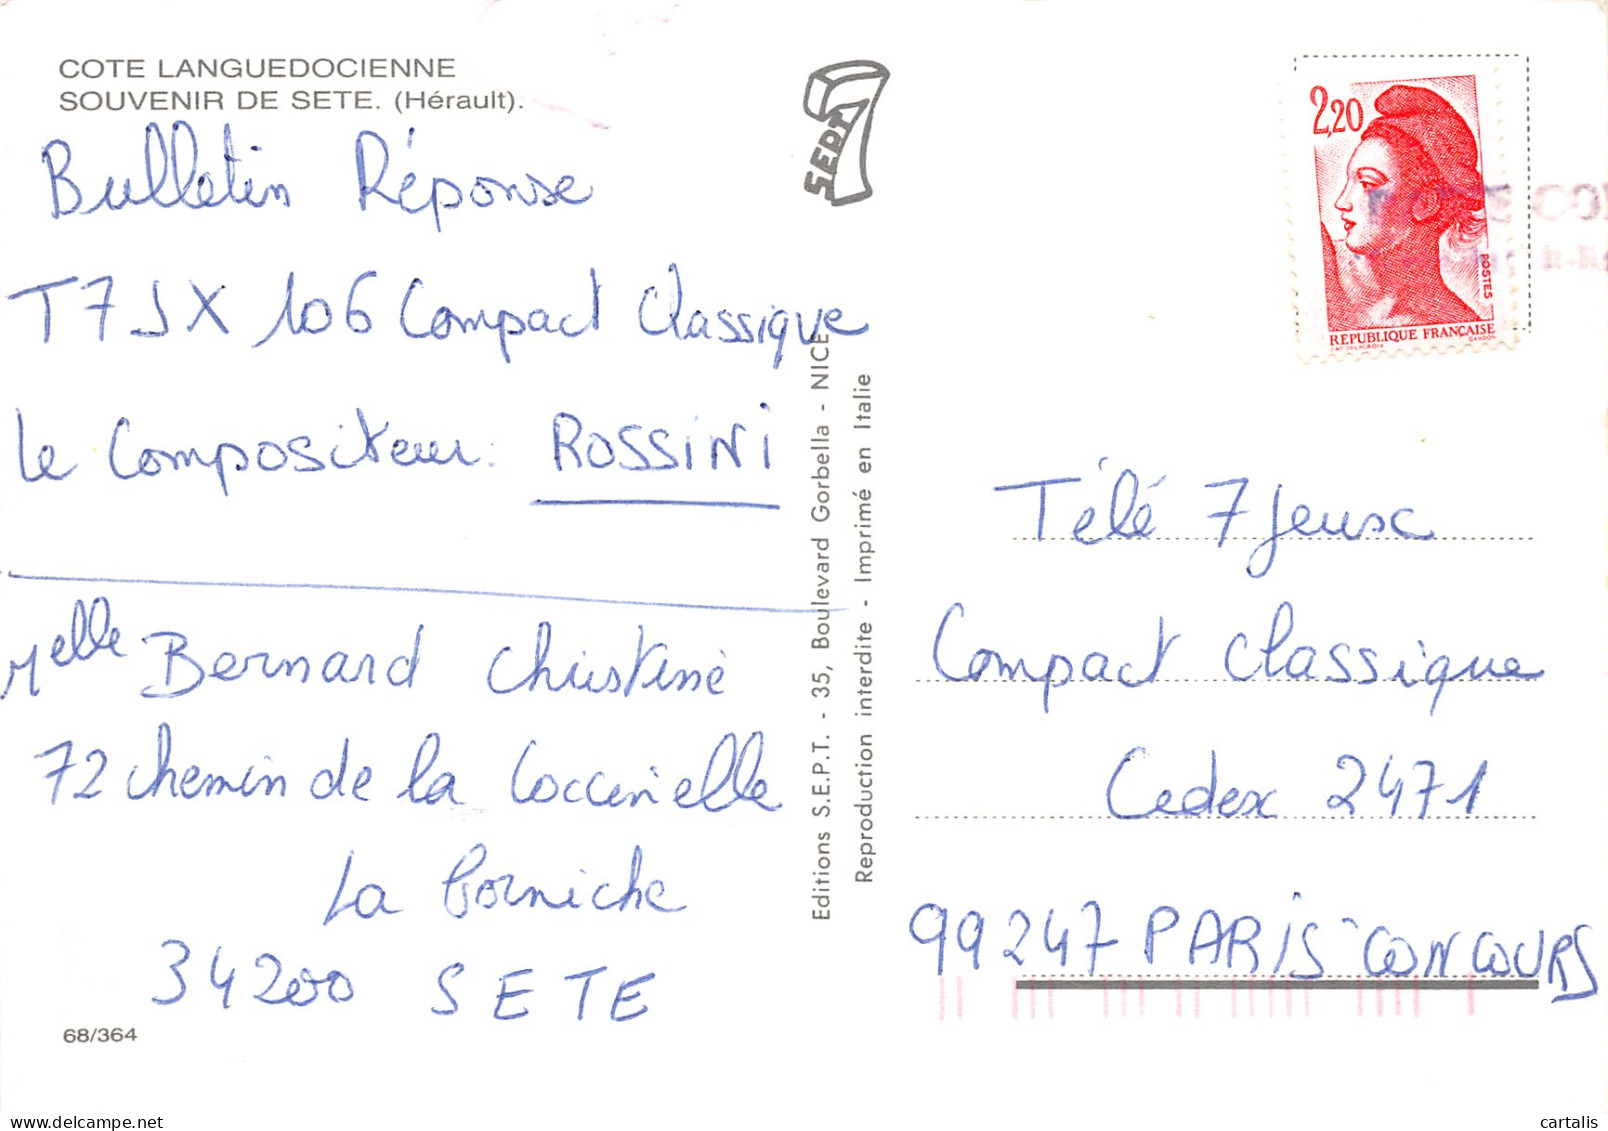 COTE LANGUEDOCIENNE
SOUVENIR DE SETE. (Hérault).
Bulletin Réponse
T7JX 106 Compact Classique
le Compositeur: ROSSINI
Melle Bernard Christine
72 chemin de la Coccinielle
La Corniche
34200 SETE
68/364
SEPT
7
Editions S.E.P.T. - 35, Boulevard Gorbella - NICE
Reproduction interdite - Imprimé en Italie
2,20
POSTES
REPUBLIQUE FRANÇAISE
GANDON
Télé 7 Jeux
Compact Classique
Cedex 2471
99247 PARIS CONCOURS
cartalis